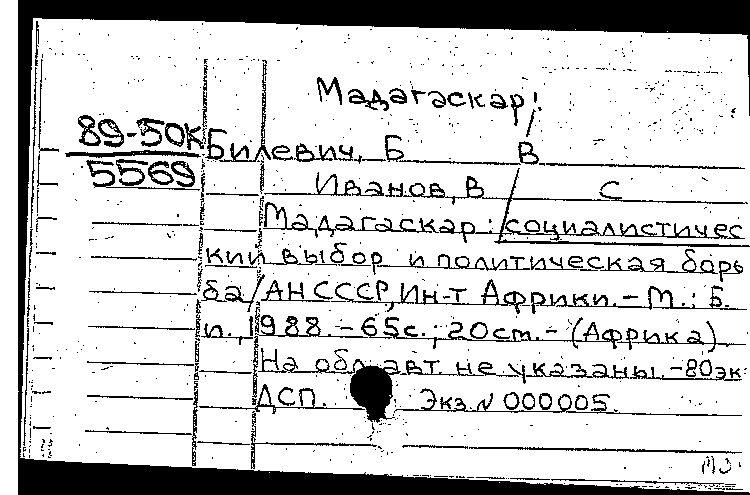 Мадагаскар!
89-50К Билевич, Б В
5569 Иванов, В С
Мадагаскар: социалистичес
кий выбор и политическая борь
ба/АН СССР, Ин-т Африки. - М.: Б.
и., 1988. - 65с.; 20см. - (Африка).
На обл. авт. не указаны. - 80эк
ДСП. Экз. N 000005.